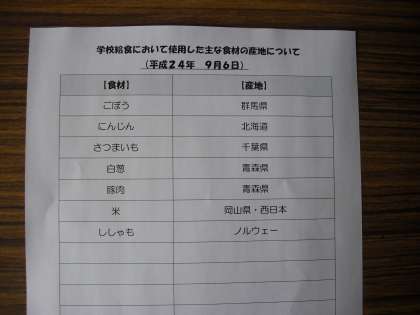 学校給食において使用した主な食材の産地について
(平成24年 9月6日)
【食材】 【産地】
ごぼう 群馬県
にんじん 北海道
さつまいも 千葉県
白葱 青森県
豚肉 青森県
米 岡山県・西日本
ししゃも ノルウェー